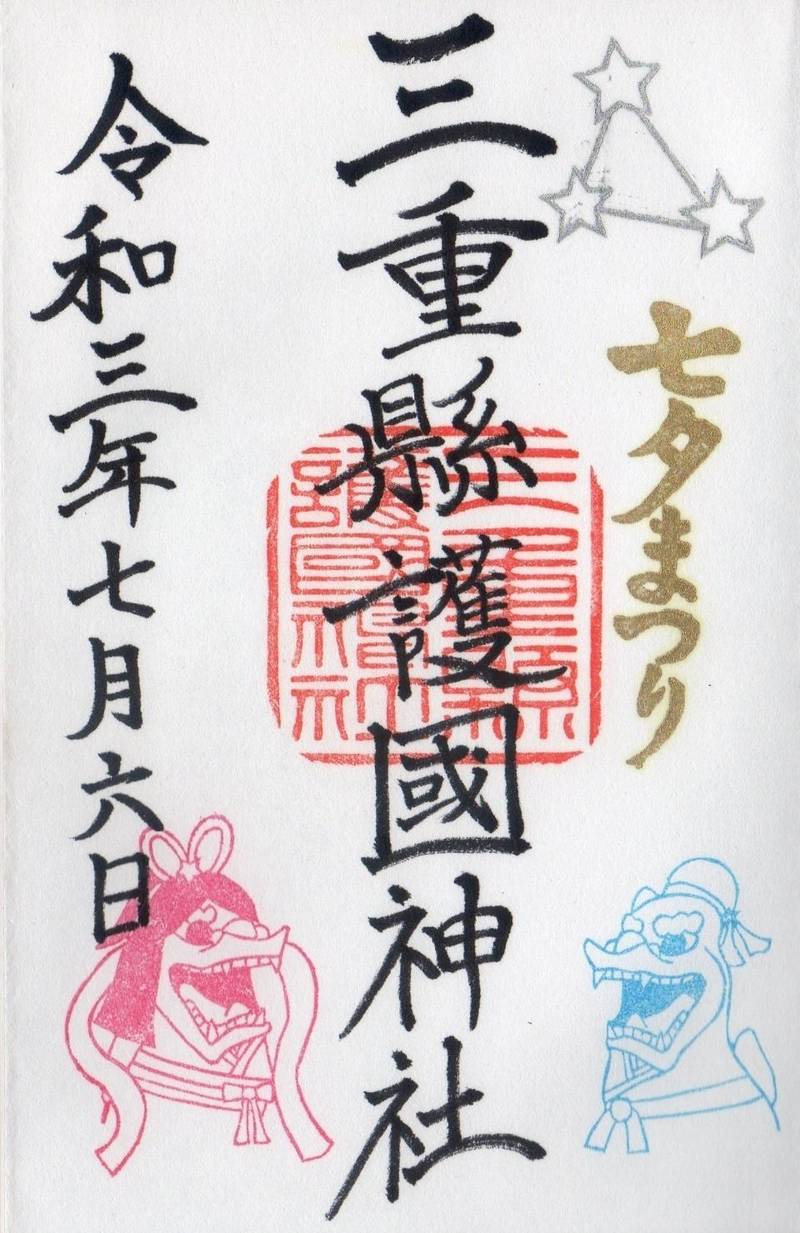 七夕まつり
三重縣護國神社
三重縣護國神社
令和三年七月六日